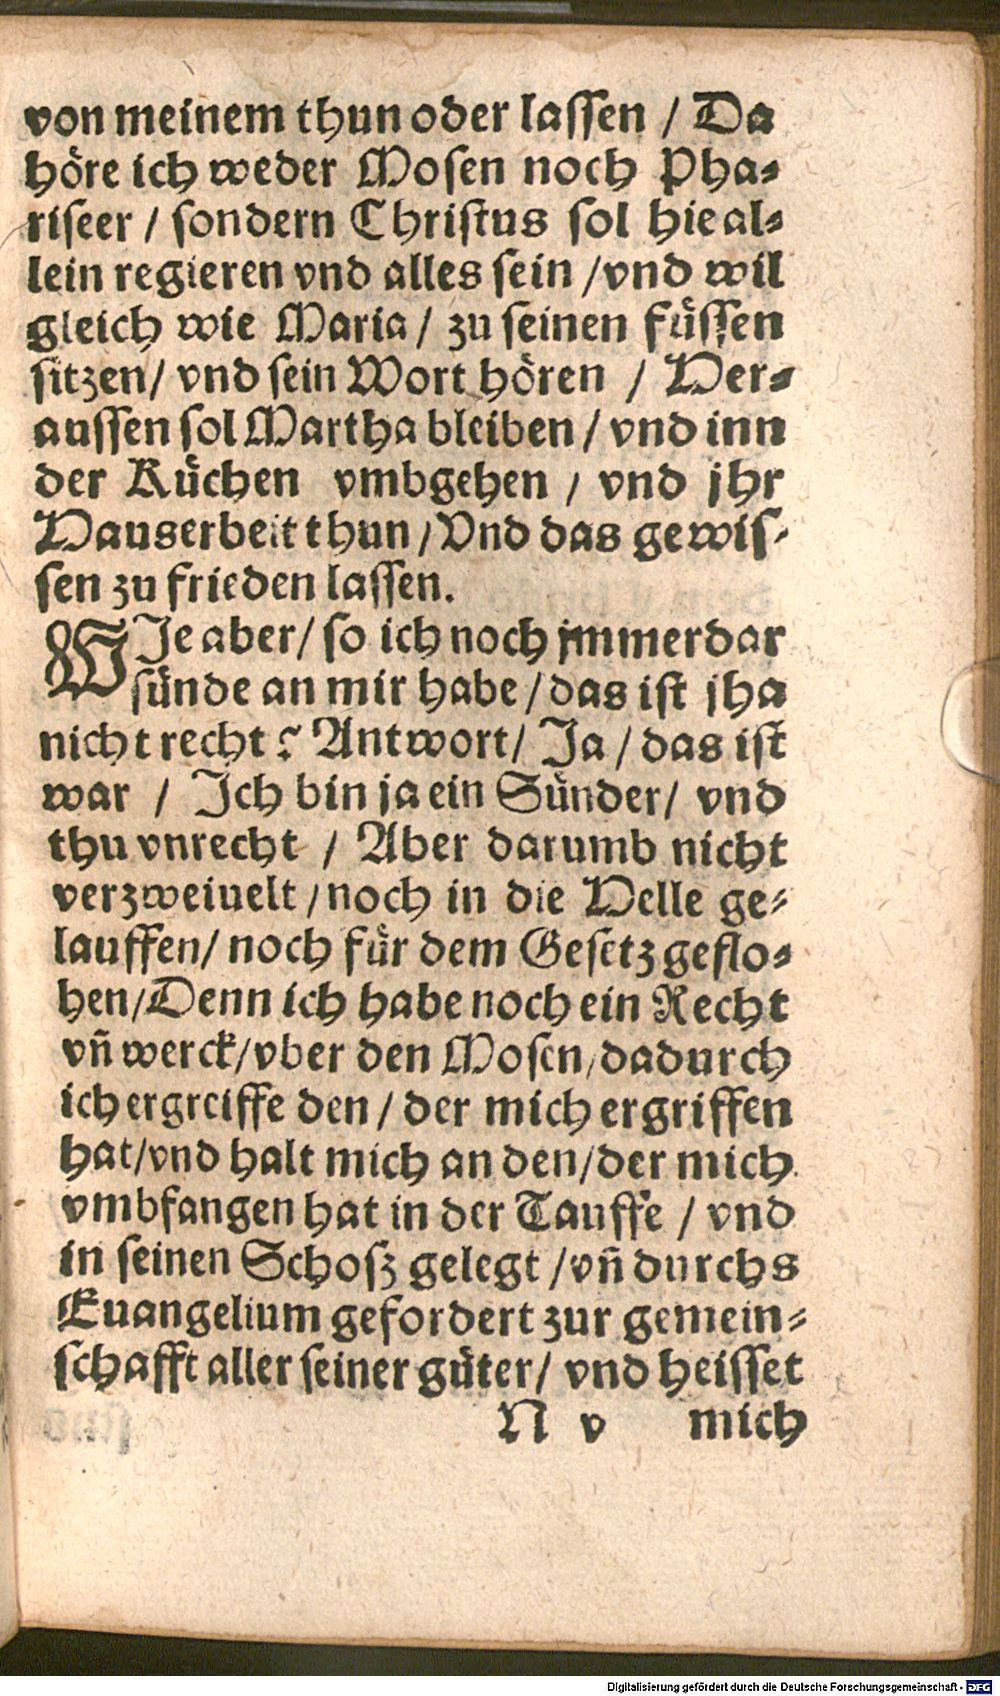 von meinem thun oder lassen / Da
höre ich weder Mosen noch Pha-
riseer / sondern Christus sol hie al-
lein regieren vnd alles sein / vnd wil
gleich wie Maria / zu seinen füssen
sitzen / vnd sein Wort hören / Her-
aussen sol Martha bleiben / vnd inn
der Küchen vmbgehen / vnd jhr
Hauserbeit thun / Vnd das gewis-
sen zu frieden lassen.
WJe aber / so ich noch jmmerdar
sünde an mir habe / das ist jha
nicht recht? Antwort / Ja / das ist
war / Ich bin ja ein Sünder / vnd
thu vnrecht / Aber darumb nicht
verzweiuelt / noch in die Helle ge-
lauffen / noch für dem Gesetz geflo-
hen / Denn ich habe noch ein Recht
vñ werck / vber den Mosen / dadurch
ich ergreiffe den / der mich ergriffen
hat / vnd halt mich an den / der mich
vmbfangen hat in der Tauffe / vnd
in seinen Schosz gelegt / vñ durchs
Euangelium gefordert zur gemein-
schafft aller seiner güter / vnd heisset
N v mich
Digitalisierung gefördert durch die Deutsche Forschungsgemeinschaft - DFG